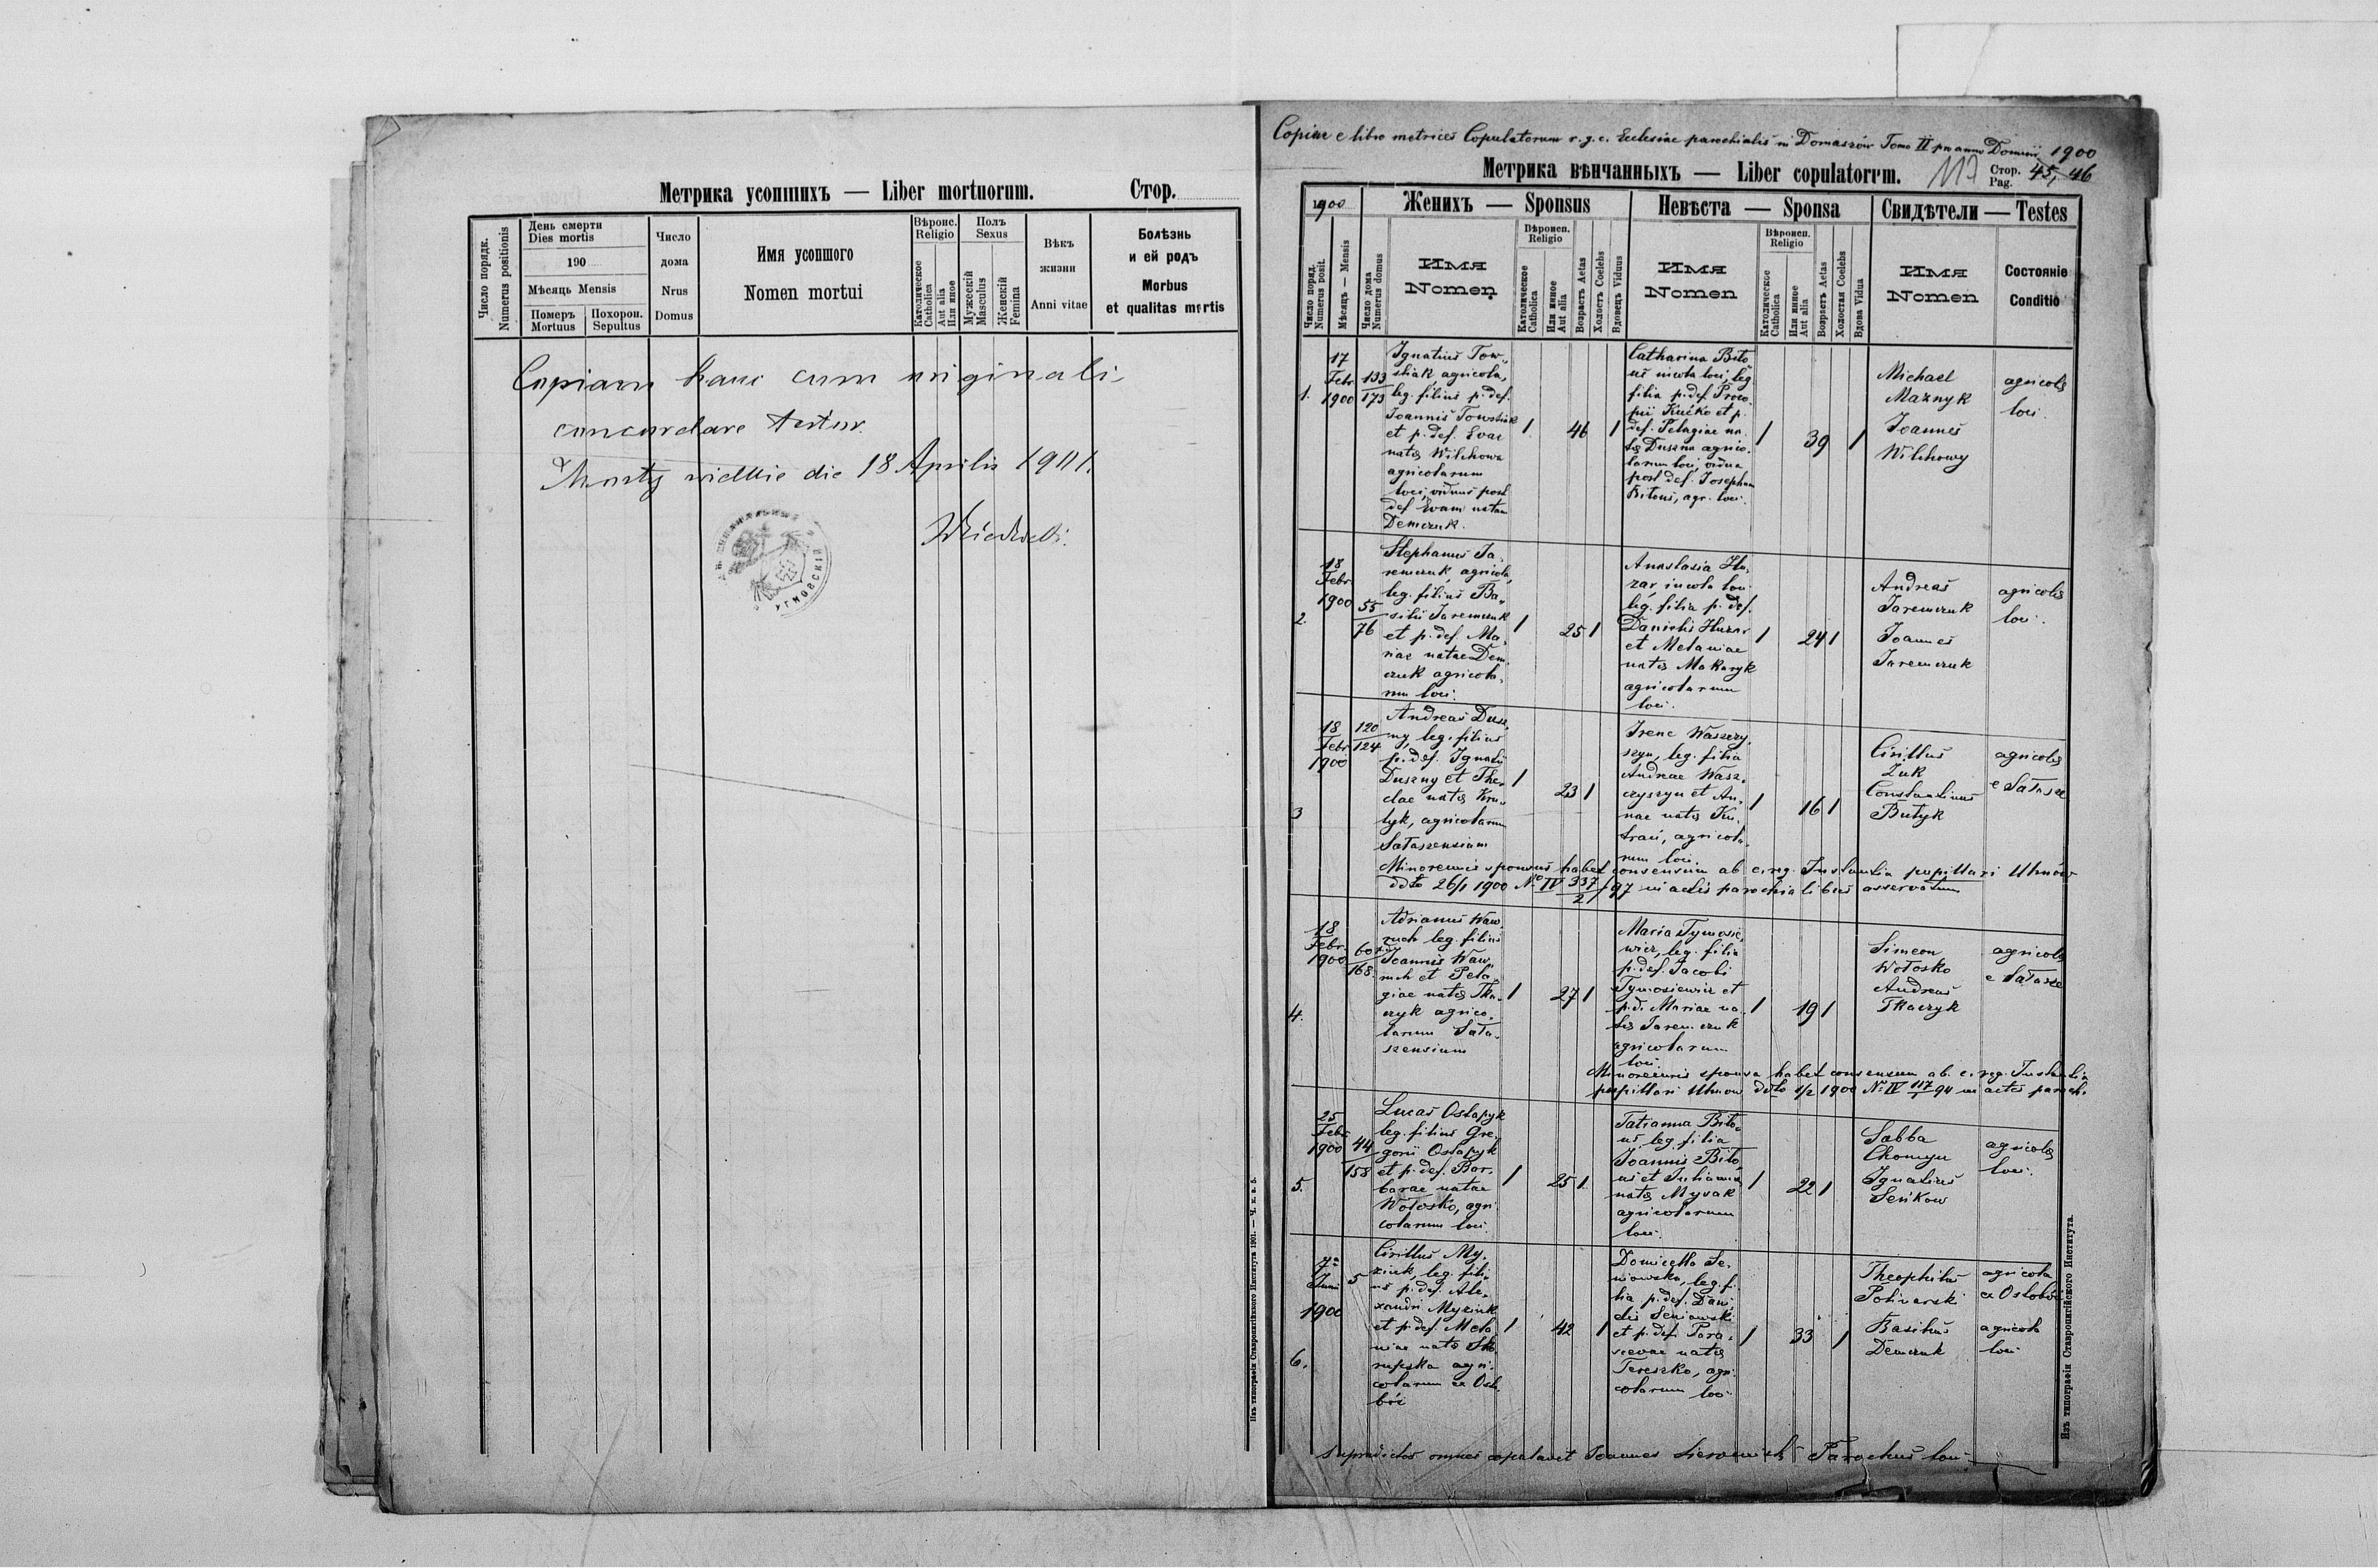 Метрика усопшихъ — Liber mortuorum. Стор.
Число порядк. Numerus positionis
День смерти
Dies mortis
190
Мѣсяць Mensis
Померъ Mortuus
Похорон. Sepultus
Число
дома
Nrus
Domus
Имя усопшого
Nomen mortui
Вѣроис.
Religio
Католическое Catholica
Или иное Aut alia
Полъ
Sexus
Мужескій Masculus
Женскій Femina
Вѣкъ
жизни
Anni vitae
Болѣзнь
и ей родъ
Morbus
et qualitas mortis
Copiam hanc cum originali
concordare testor.
Mosty wielkie die 18 Aprilis 1901.
Изъ типографіи Ставропигійского Института 1901. — Ч. к. а. 5.
Copiae e libro metrices Copulatorum r. g. c. Ecclesiae parochialis in Domaszów Tomo II pro anno Domini 1900
Метрика вѣнчанныхъ — Liber copulatorum. 117 Стор. Pag. 45, 46
1900
Женихъ — Sponsus
Невѣста — Sponsa
Свидѣтели — Testes
Число поряд. Numerus posit.
Мѣсяць — Mensis
Число дома Numerus domus
Имя
Nomen
Вѣроисп.
Religio
Католическое Catholica
Или иное Aut alia
Возрастъ Aetas
Холостъ Coelebs
Вдовецъ Viduus
Имя
Nomen
Вѣроисп.
Religio
Католическое Catholica
Или иное Aut alia
Возрастъ Aetas
Холостая Coelebs
Вдова Vidua
Имя
Nomen
Состояніе
Conditio
1.
17
Febr.
1900
133
173
Ignatius Tow-
stiak, agricola,
leg. filius p. def.
Joannis Towstiak
et p. def. Evae
natae Wilchowa
agricolarum
loci, viduus post
def. Evam natam
Demczuk.
1 46 1
Catharina Bito
us incola loci, leg.
filia p. def. Proco-
pii Kućko et p.
def. Pelagiae na-
tae Duszna agrico-
larum loci, vidua
post def. Josephum
Bitous, agr. loci.
1 39 1
Michael
Maznyk
Joannes
Wilchowy
agricolae
loci.
2.
18
Febr.
1900
55
76
Stephanus Ja-
remczuk, agricola,
leg. filius Ba-
silii Jaremczuk
et p. def. Ma-
riae natae Dem-
czuk agricola-
rum loci.
1 25 1
Anastasia Hu-
zar, incola loci
leg. filia p. def.
Danielis Huzar
et Melaniae
natae Makaryk
agricolarum
loci.
1 24 1
Andreas
Jaremczuk
Joannes
Jaremczuk
agricolae
loci.
3
18
Febr.
1900
120
124
Andreas Dusz-
ny, leg. filius
p. def. Ignatii
Duszny et The-
clae natae Kru-
tyk, agricolarum
Sałaszensium
1 23 1
Irene Waszczy-
szyn, leg. filia
Andreae Wasz-
czyszyn et An-
nae natae Ku-
trań, agricola-
rum loci.
1 16 1
Cirillus
Żuk
Constantinus
Butyk
agricolae
e Sałasze
Minorennis sponsus habet consensum ab c. reg. Instantia pupillari Uhnów
ddto 26/1 1900 No IV 337/2/97 in actis parochialibus asservatum
4.
18
Febr.
1900
60
168
Adrianus Waw-
ruch leg. filius
Joannis Waw-
ruch et Pela-
giae natae Tka-
czyk agrico-
larum Sała-
szensium
1 27 1
Maria Tymosie-
wicz, leg. filia
p. def. Jacobi
Tymosiewicz et
p. d. Mariae na-
tae Jaremczuk
agricolarum
loci.
1 19 1
Simeon
Wołosko
Andreas
Tkaczyk
agricolae
e Sałasze
Minorennis sponsa habet consensum ab. c. reg. Instantia
pupillari Uhnow ddto 1/2 1900 No IV 117/1 94 in actis paroch.
5.
25
Febr.
1900
44
158
Lucas Ostapyk
leg. filius Gre-
gorii Ostapyk
et p. def. Bar-
barae natae
Wołosko, agri-
colarum loci.
1 25 1
Tatianna Bito-
us, leg. filia
Joannis Bito-
us et Julianna
natae Myvak
agricolarum
loci.
1 22 1
Sabba
Chomyn
Ignatius
Seńkow
agricolae
loci.
6.
7a
Juni
1900
5
Cirillus My-
ziuk, leg. fili-
us p. def. Ale-
xandri Myziuk
et p. def. Mela-
niae natae Sko-
rupska agri-
colarum ex Osto-
bóż
1 42 1
Domicella Se-
niowska, leg. fi-
lia p. def. Dani-
elis Seniowski
et p. def. Para-
scevae natae
Tereszko, agri-
colarum loci
1 33 1
Theophilus
Polivarski
Basilius
Demczuk
agricola
ex Ostobóż
agricola
loci
Supradictos omnes copulavit Joannes Parochus loci.
Изъ типографіи Ставропигійского Института.